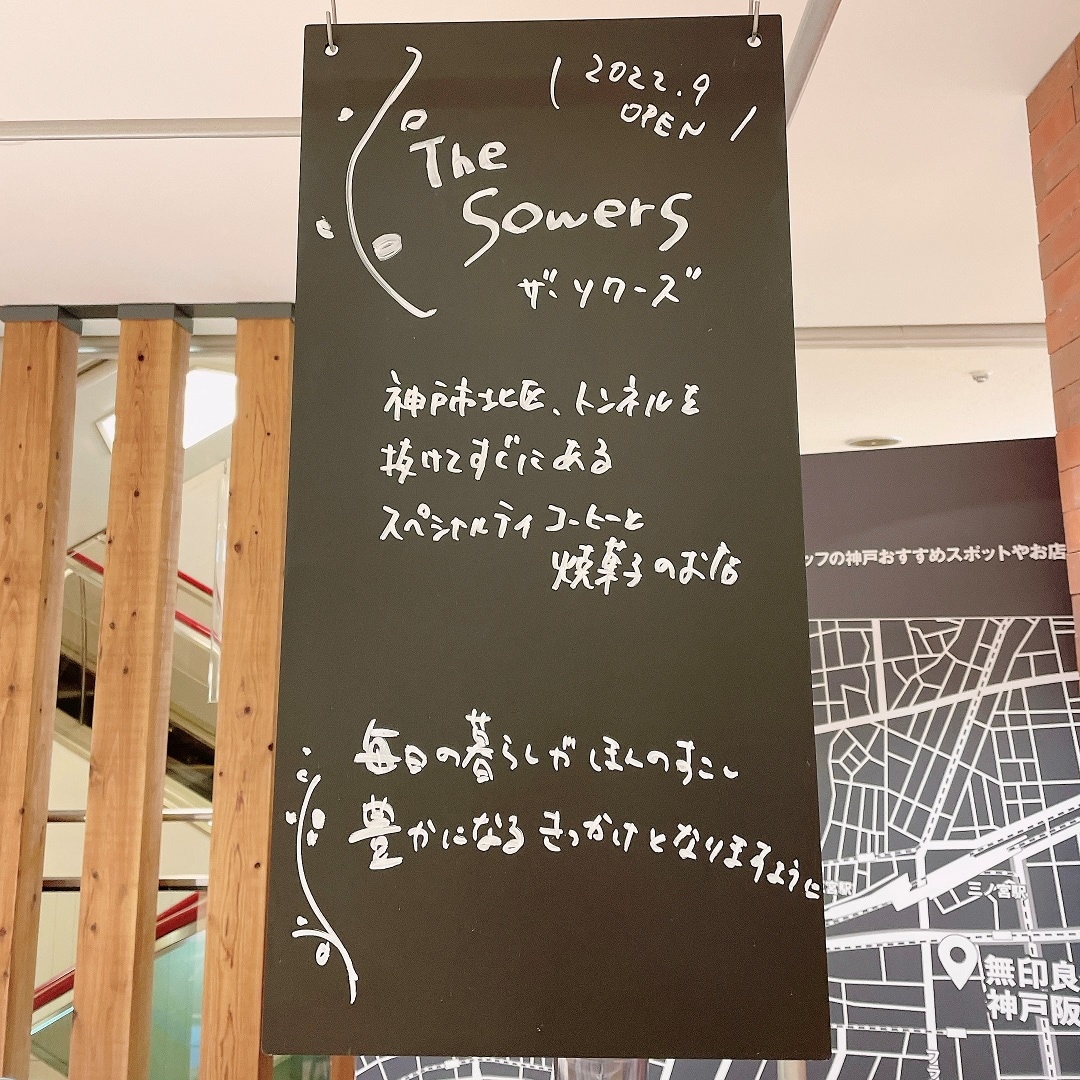 2022.9
OPEN
The
Sowers
ザ・ソワーズ
神戸市北区、トンネルを
抜けてすぐにある
スペシャルティコーヒーと
焼菓子のお店
毎日の暮らしがほんのすこし
豊かになるきっかけとなりますように
ッフの神戸おすすめスポットやお店
宮駅
三ノ宮駅
無印良
神戸阪